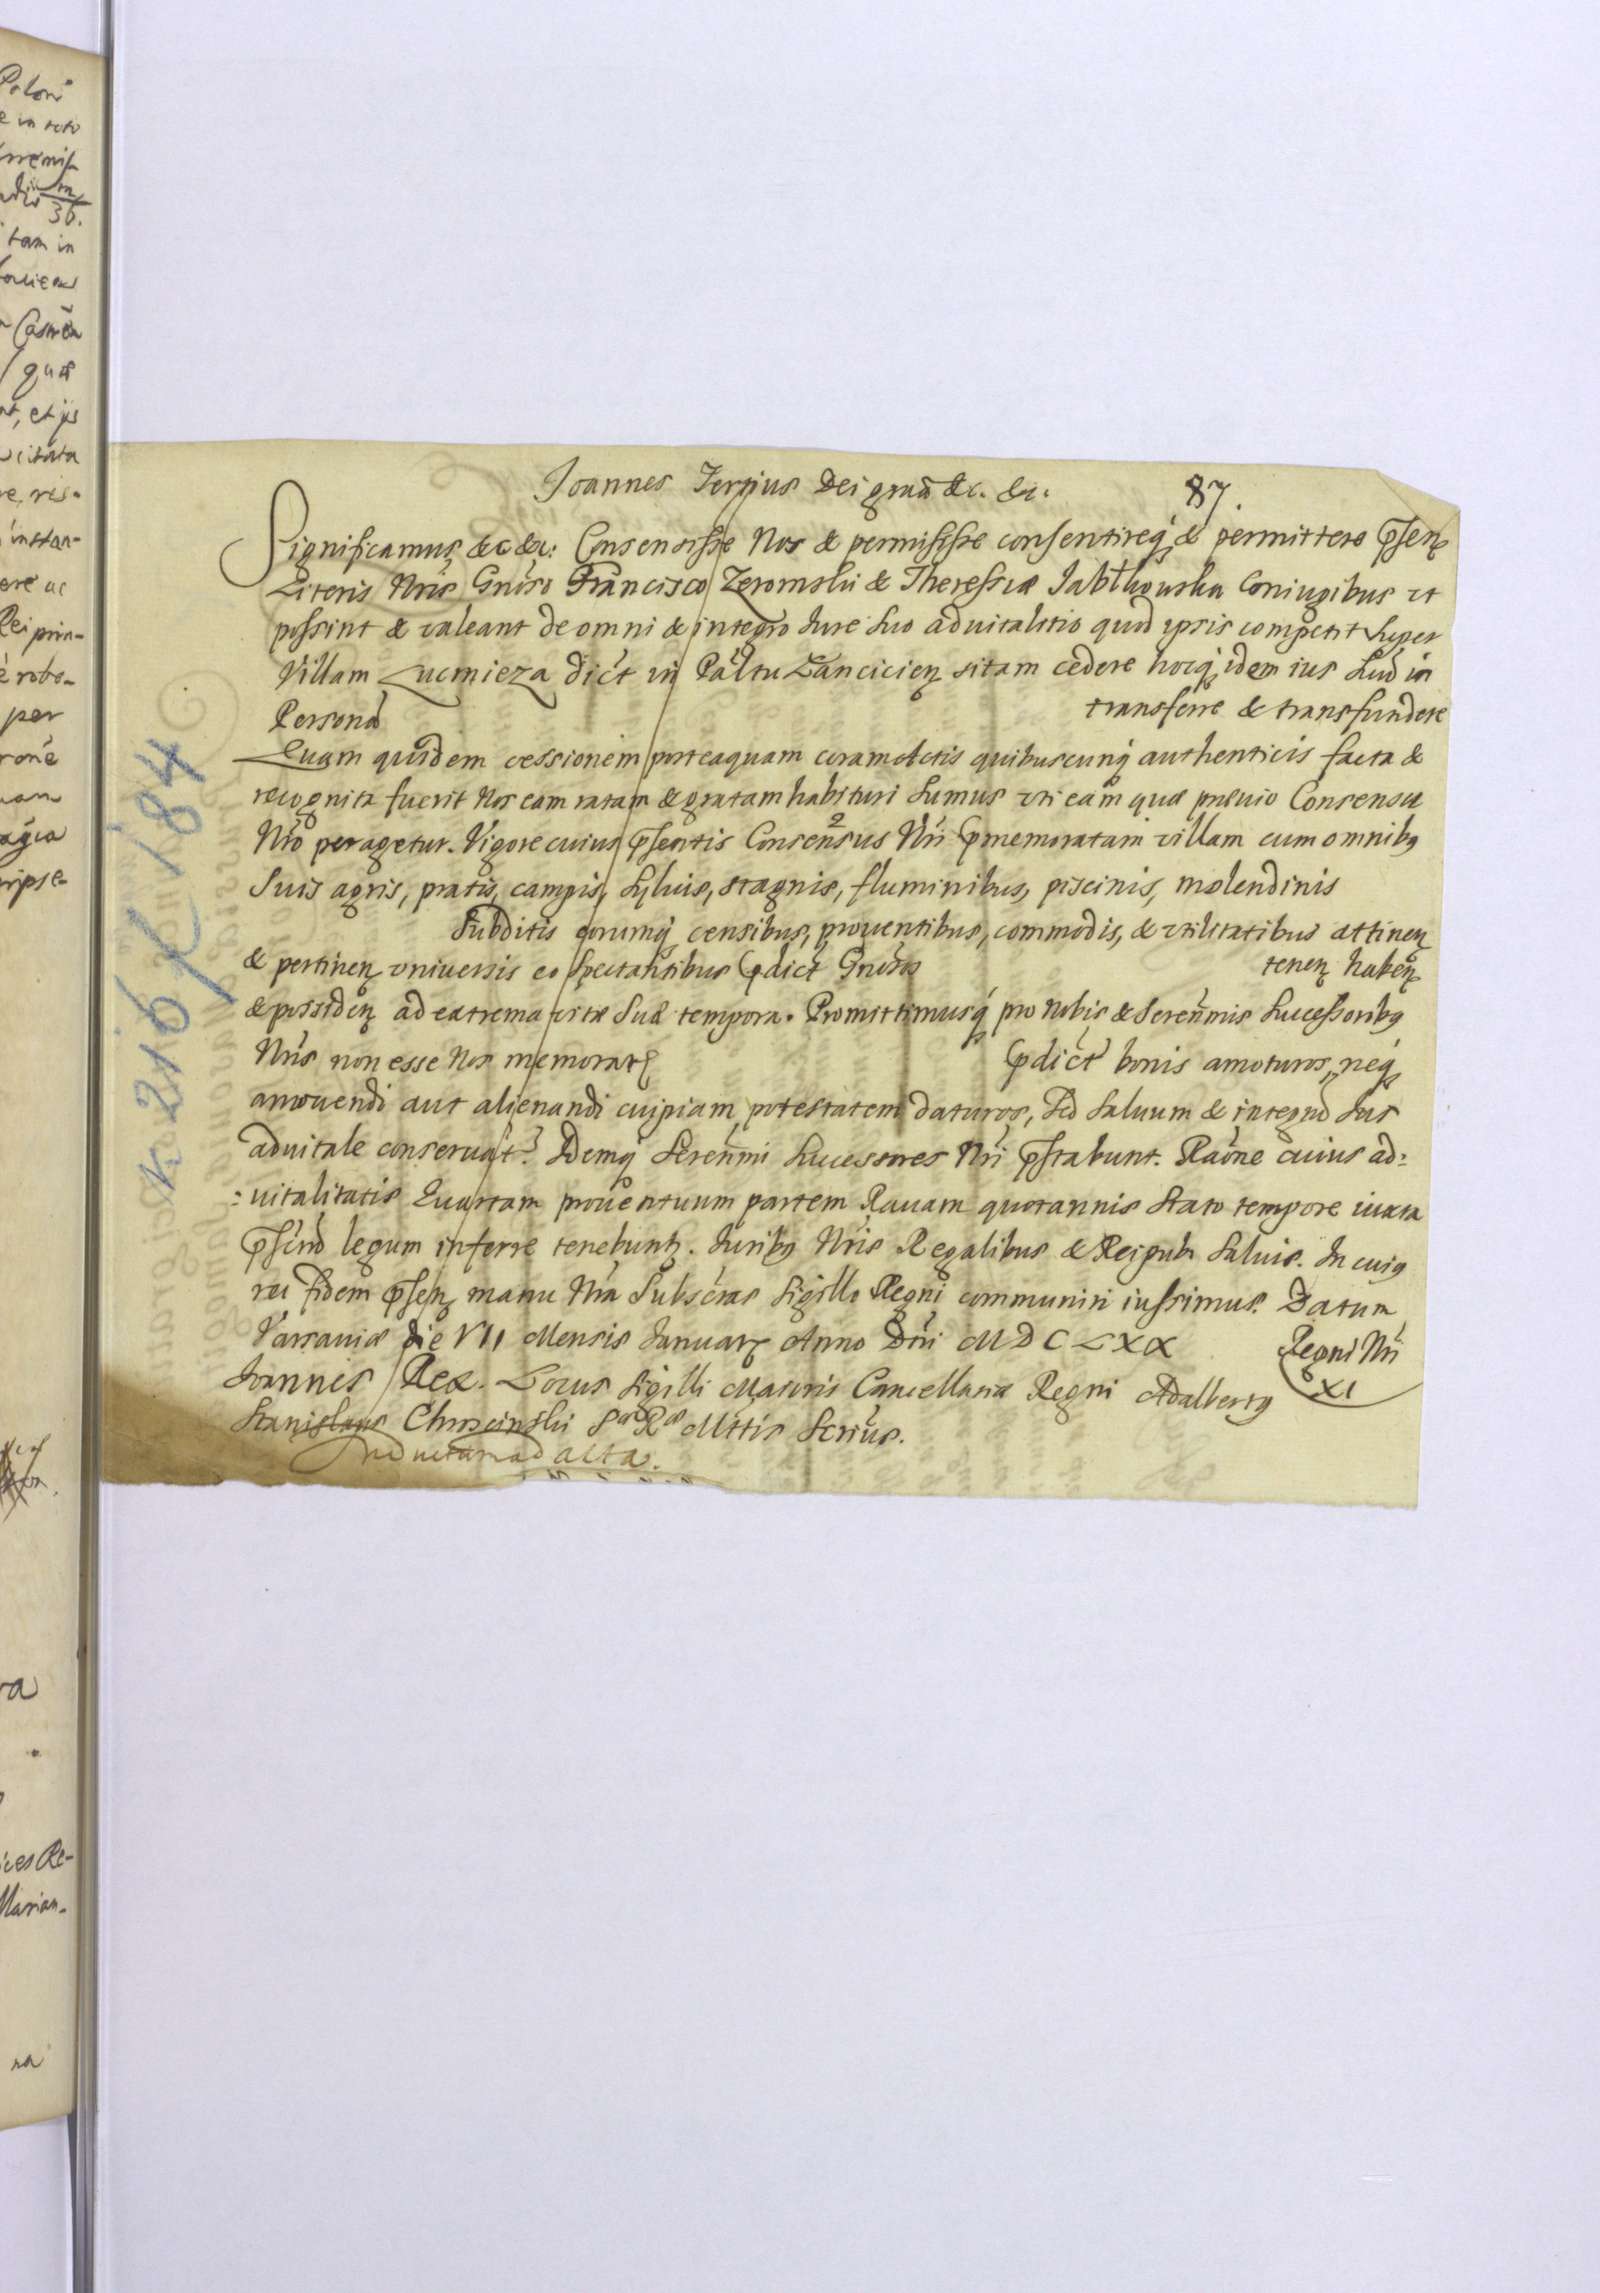 Joannes Tertius Dei graã &c. &c. 87.
Significamus &c &c: Consensisse Nos & permisisse consentireq́ & permittere p̃sen
Literis Nris Gnoso Francisco Zeromski & Theressiæ Jabłkowska Coniugibus ut
possint & valeant de omni & integro Jure Suo aduitalitio quod ipsis competit super
Villam Lucmieza dict in Paltu Lancicien sitam cedere hocq́ idem ius Suũ in
Personã transferre & transfundere
Quam quidem cessionem posteaquam coram Actis quibuscunq́ authenticis facta &
recognita fuerit Nos eam ratam & gratam habituri Sumus uti eam quæ præuio Consensu
Nro peragetur. Vigore cuius p̃sentis Consensus Nri p̃memoratam villam cum omnibq
Suis agris, pratis, campis, Syluis, stagnis, fluminibus, piscinis, molendinis
Subditis eorumq́ censibus, prouentibus, commodis, & utilitatibus attinen
& pertinen uniuersis eo spectantibus p̃dict Gnosos tenen haben
& possiden ad extrema vitæ Suæ tempora. Promittimusq́ pro Nobis & Serenmis Successoribq
Nris non esse Nos memorat p̃dict bonis amoturos, neq́
amouendi aut alienandi cuipiam potestatem daturos, Sed saluum & integrũ Jus
aduitale conseruat. Idemq́ Serenmi Successores Nri p̃stabunt. Raõne cuius ad:
:uitalitatis Quartam prouentuum partem Rauam quotannis Stato tempore iuxta
p̃scriõ legum inferre tenebunt. Juribq Nris Regalibus & Reipub Saluis. In cuiq
rei fidem p̃sen manu Nra Subscras Sigillo Regni communiri iussimus. Datum
Varsauiæ die VII Mensis Januar Anno Dni MDCLXX Regni Nri
XI
Joannes Rex. Locus Sigilli Maioris Cancellariæ Regni Adalbertq
Stanislaus Chroscinski Sæ Ræ Mttis Scrius.
Inductum ad acta.
k 216 / 184